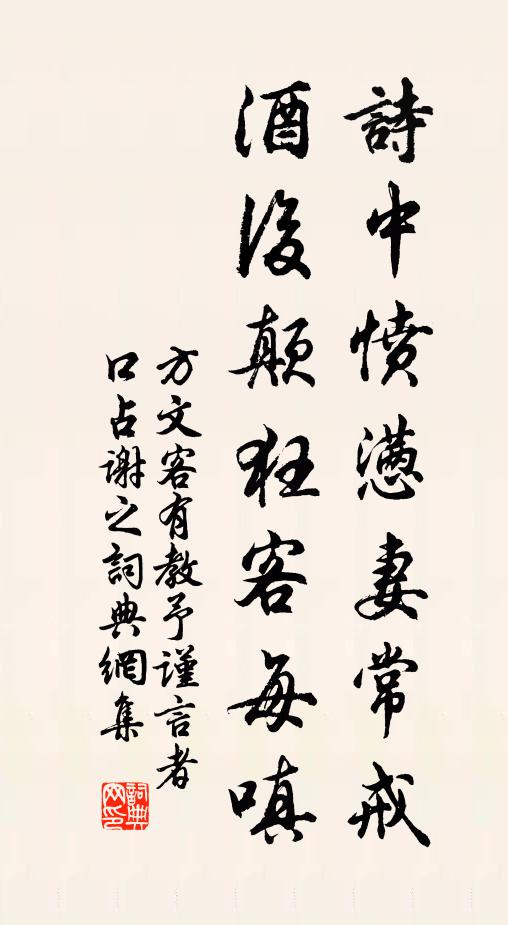 詩中憤懣妻常戒
酒後顛狂客每嗔
方文客有教予謹言者
口占謝之詞典網集
詞典
网印